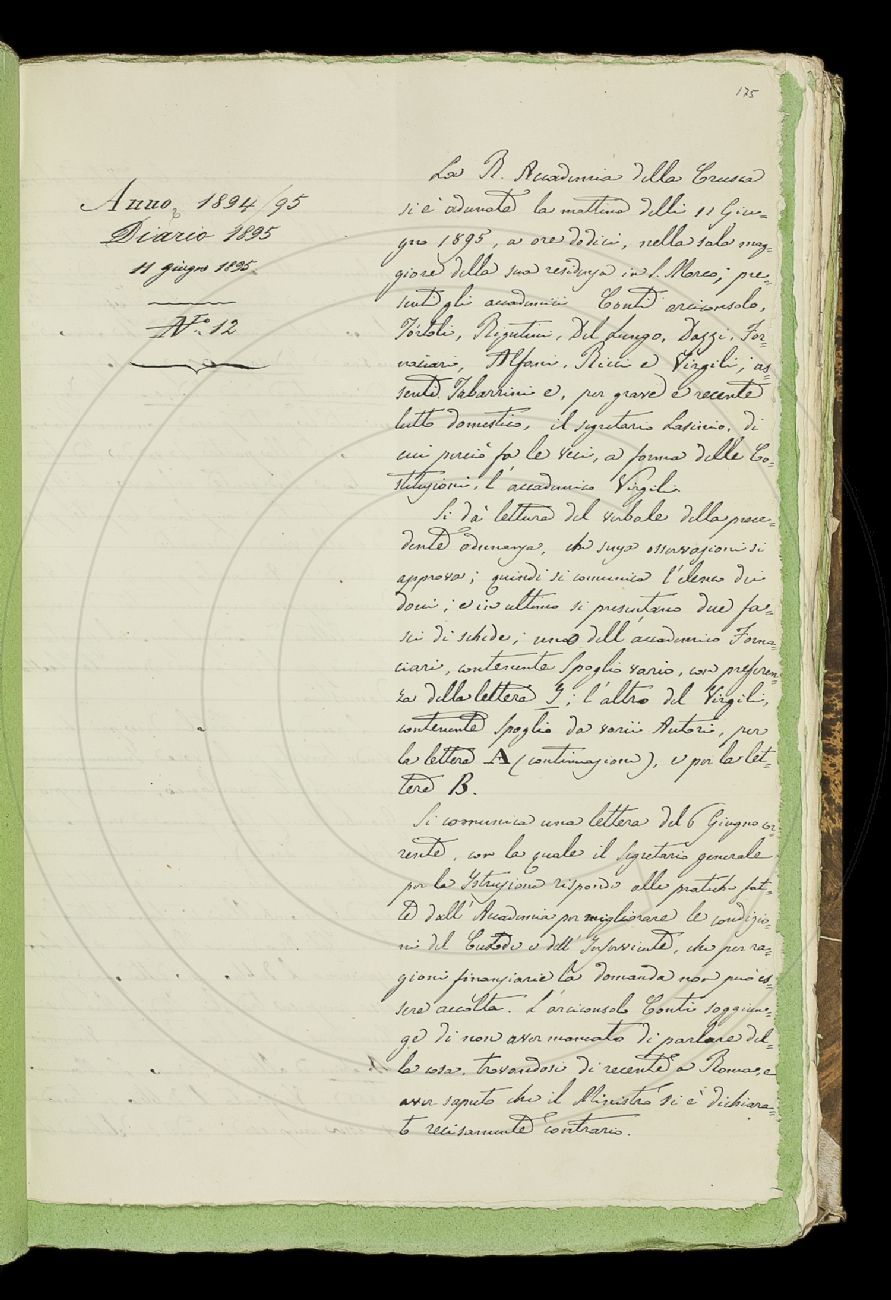 175
Anno, 1894/95
Diario 1895
11 giugno 1895
N.ro 12
La R. Accademia della Crusca
si è adunata la mattina delli 11 Giu-
gno 1895, a ore dodici, nella sala mag-
giore della sua residenza in S. Marco; pre-
senti gli accademici Conti arciconsolo,
Tortoli, Rigutini, Del Lungo, Dazzi, For-
naciari, Alfani, Ricci e Virgili; as-
senti Tabarrini e, per grave e recente
lutto domestico, il segretario Lasinio, di
cui perciò fa le veci, a forma delle Co-
stituzioni, l'accademico Virgili.
Si dà lettura del verbale della prece-
dente adunanza, che senza osservazioni si
approva; quindi si comunica l'elenco dei
doni; e in ultimo si presentano due fa-
sci di schede; uno dell'accademico Forna-
ciari, contenente spoglio vario, con preferen-
za della lettera I; l'altro del Virgili,
contenente spoglio da varii Autori, per
la lettera A (continuazione), e per la let-
tera B.
Si comunica una lettera del 6 Giugno cor-
rente, con la quale il Segretario generale
per la Istruzione risponde alle pratiche fat-
te dall'Accademia per migliorare le condizio-
ni del Custode e dell'Inserviente, che per ra-
gioni finanziarie la domanda non può es-
sere accolta. L'arciconsolo Conti soggiun-
ge di non aver mancato di parlare del-
la cosa, trovandosi di recente a Roma, e
aver saputo che il Ministro si è dichiara-
to recisamente contrario.